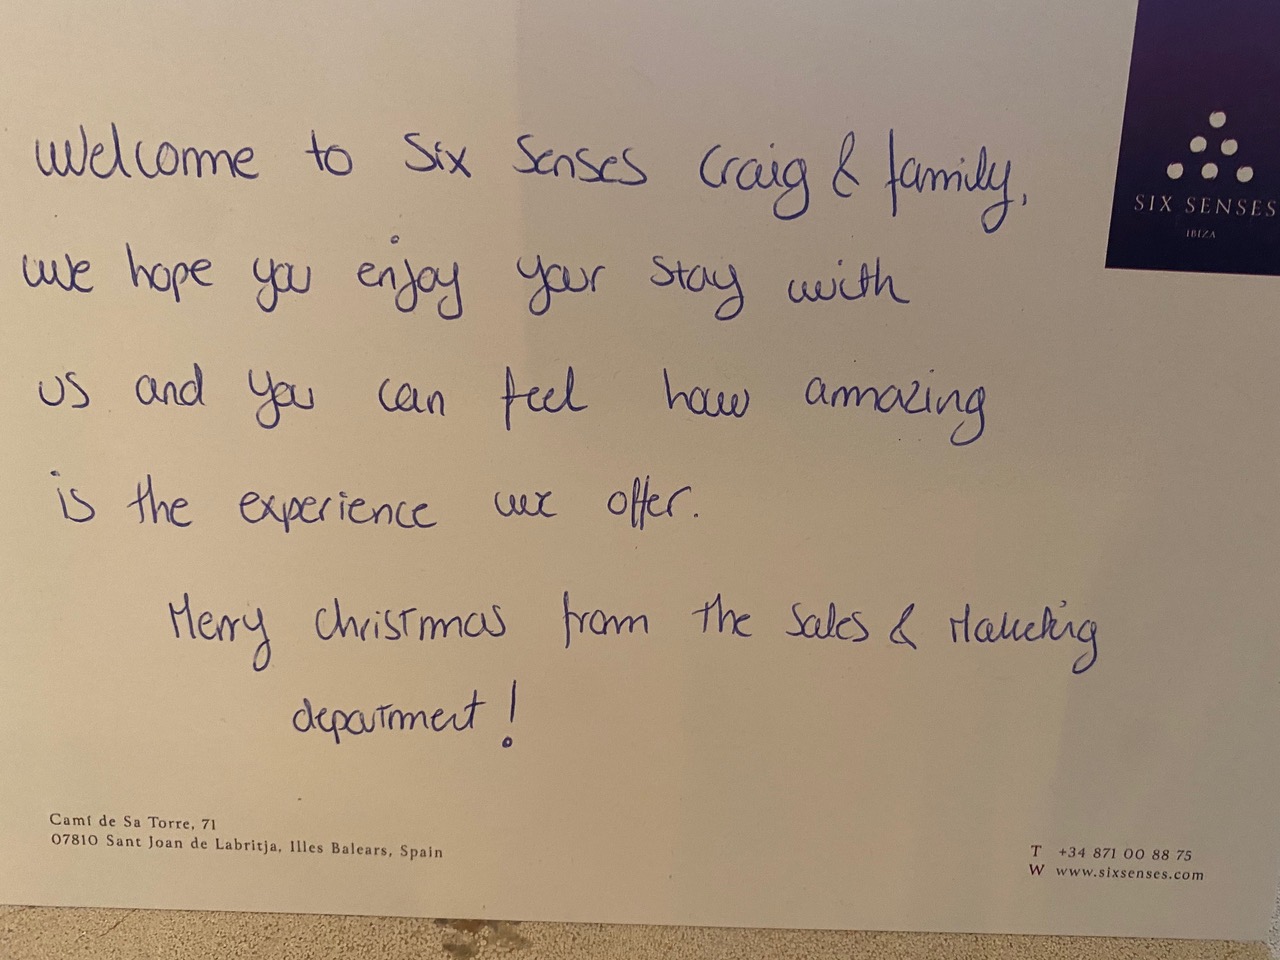 Welcome to Six Senses Craig & family,
we hope you enjoy your stay with
us and you can feel how amazing
is the experience we offer.
Merry Christmas from the Sales & Marketing
department!
SIX SENSES
IBIZA
Camí de Sa Torre, 71
07810 Sant Joan de Labritja, Illes Balears, Spain
T +34 871 00 88 75
W www.sixsenses.com